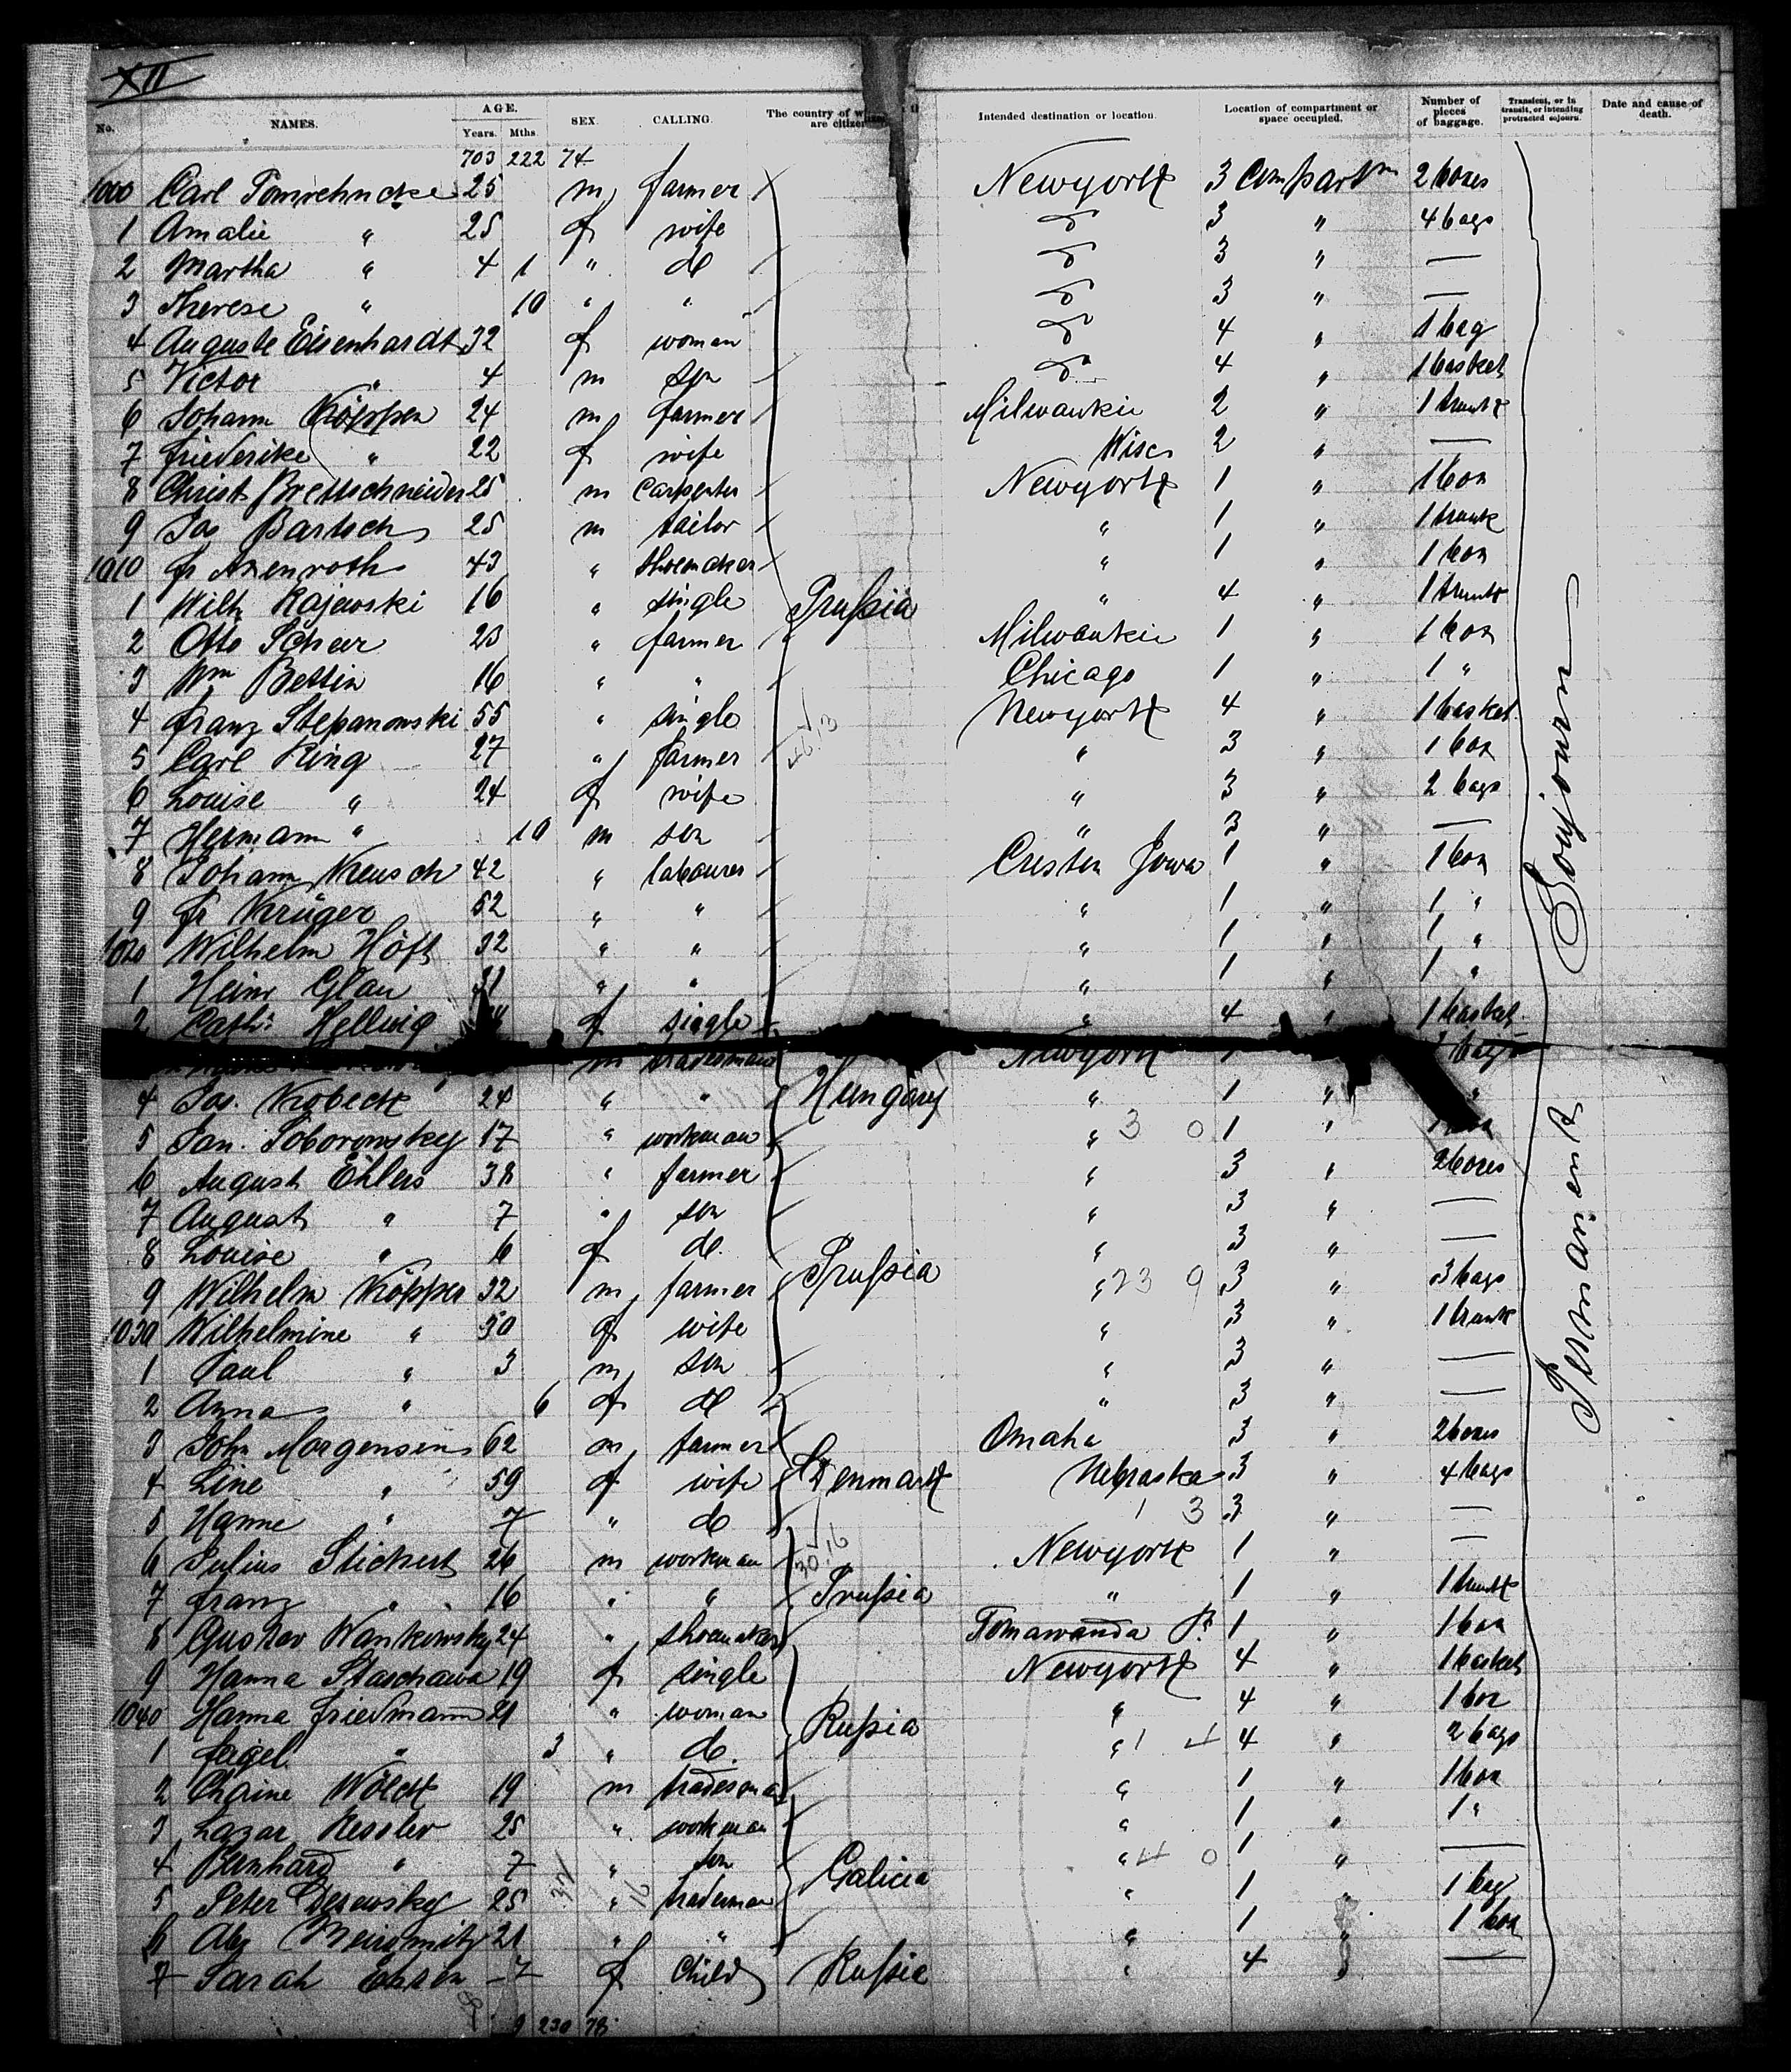 XII
No. NAMES. AGE. Years. Mths. SEX. CALLING. The country of are citizen Intended destination or location. Location of compartment or space occupied. Number of pieces of baggage. Transient, or in transit, or intending protracted sojourn. Date and cause of death.
703 222 74
1000 Carl 25 m farmer Newyork 3 Compartm 2 boxes
1 Amalie " 25 f wife do 3 " 4 bags
2 Martha " 4 1 " do do 3 " —
3 Therese " 10 " " do 3 " —
4 Auguste Eisenhardt 32 f woman do 4 " 1 bag
5 Victor " 4 m son do 4 " 1 basket
6 Johann Köppen 24 m farmer Milwaukie 2 " 1 trunk
7 Friederike " 22 f wife Wisc 2 " —
8 Christ Brettschneider 25 m carpenter Newyork 1 " 1 box
9 Jos Bartsch 25 m tailor " 1 " 1 trunk
1010 Fr Axenroth 43 " shoemaker " 1 " 1 box
1 Wilh Rajewski 16 " single Prussia " 4 " 1 trunk
2 Otto Scheer 23 " farmer " Milwaukie 1 " 1 box
3 Wm Bettin 16 " " Chicago 1 " 1 "
4 Franz Stepanowski 55 " single Newyork 4 " 1 basket
5 Carl Ring 27 " farmer " 3 " 1 box
6 Louise " 24 f wife " 3 " 2 bags
7 Hermann " 10 m son " 3 " —
8 Johann Keusch 42 " labourer Creston Jowa 1 " 1 box
9 Fr Krüger 52 " " " 1 " 1 "
1020 Wilhelm Höft 32 " " " 1 " 1 "
1 Heinr Glau " " " 1 " 1 "
2 Cath. Hellwig f single " 4 " 1 basket
m tradesman Newyork bags
4 Jos. Kobeck 24 " " Hungary " 1 " "
5 Jan. Soborowsky 17 " workman " 3 0 1 "
6 August Ehlers 38 " farmer " 3 " 2 boxes
7 August " 7 " son " 3 " —
8 Louise " 6 f do. " 3 " —
9 Wilhelm Köpper 32 m farmer Prussia " 23 9 3 " 3 bags
1030 Wilhelmine " 30 f wife " 3 " 1 trunk
1 Paul " 3 m son " 3 " —
2 Anna " 6 f do " 3 " —
3 John Morgensen 62 m farmer Omaha 3 " 2 boxes
4 Line " 59 f wife Denmark Nebraska 3 " 4 bags
5 Hanne " 7 " do 1 3 3 " —
6 Julius Stichert 26 m workman Newyork 1 " —
7 Franz " 16 " " Prussia " 1 " 1 trunk
8 Gustav Wankowsky 24 " shoemaker Tomawanda 1 " 1 box
9 Hanna Staschawa 19 f single Newyork 4 " 1 basket
1040 Hanna Friedmann 21 " woman Russia " 4 " 1 box
1 Feigel " 3 " do. " 1 4 4 " 2 bags
2 Chaine Wölck 19 m tradesman " 1 " 1 box
3 Lazar Kessler 25 " workman " 1 " 1 "
4 Bernhard " 7 " son Galicia " 4 0 1 " —
5 Peter Derewsky 25 " tradesman " 1 " 1 bag
6 21 " " " 1 " 1 box
7 Sarah 7 f Child Russia " 4 —
230 78
Permanent Soujourn